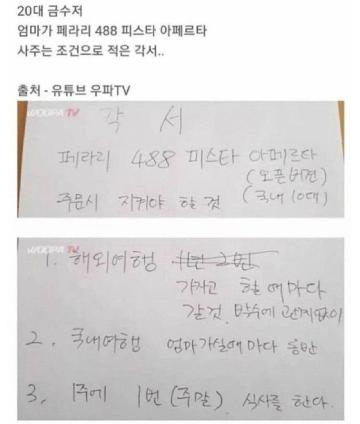 20대 금수저
엄마가 페라리 488 피스타 아페르타
사주는 조건으로 적은 각서..
출처 - 유튜브 우파TV
WOOPA TV
각 서
페라리 488 피스타 아페르타
(오픈버젼)
주문시 지켜야 할 것 (국내 10대)
WOOPA TV
1. 해외여행 1년 2번
가자고 할 때마다
갈것. 박수에 관계없이
2. 국내여행 엄마가실때마다 동반
3, 1주에 1번 (주말) 식사를 한다.